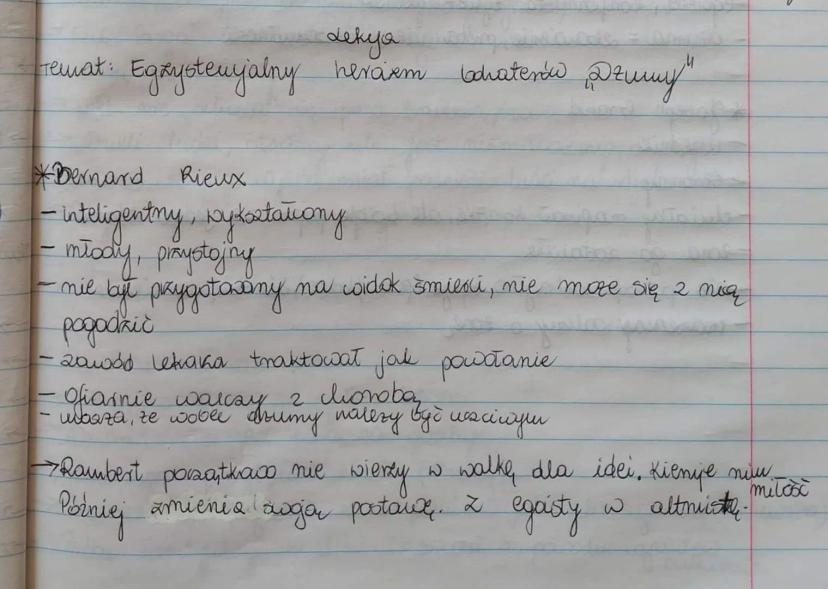 Lekcja
Temat: Egzystencjalny heroizm bohaterów „Dżumy"
*Bernard Rieux
- inteligentny, wykształcony
- młody, przystojny
- nie był przygotowany na widok śmierci, nie może się z nią
pogodzić
- zawód lekarza traktował jak powołanie
- ofiarnie walczy z chorobą
- uważa, że wobec dżumy należy być uczciwym
→ Rambert początkowo nie wierzy w walkę dla idei. Kieruje nim miłość
Później zmienia swoją postawę. Z egoisty w altruistę.